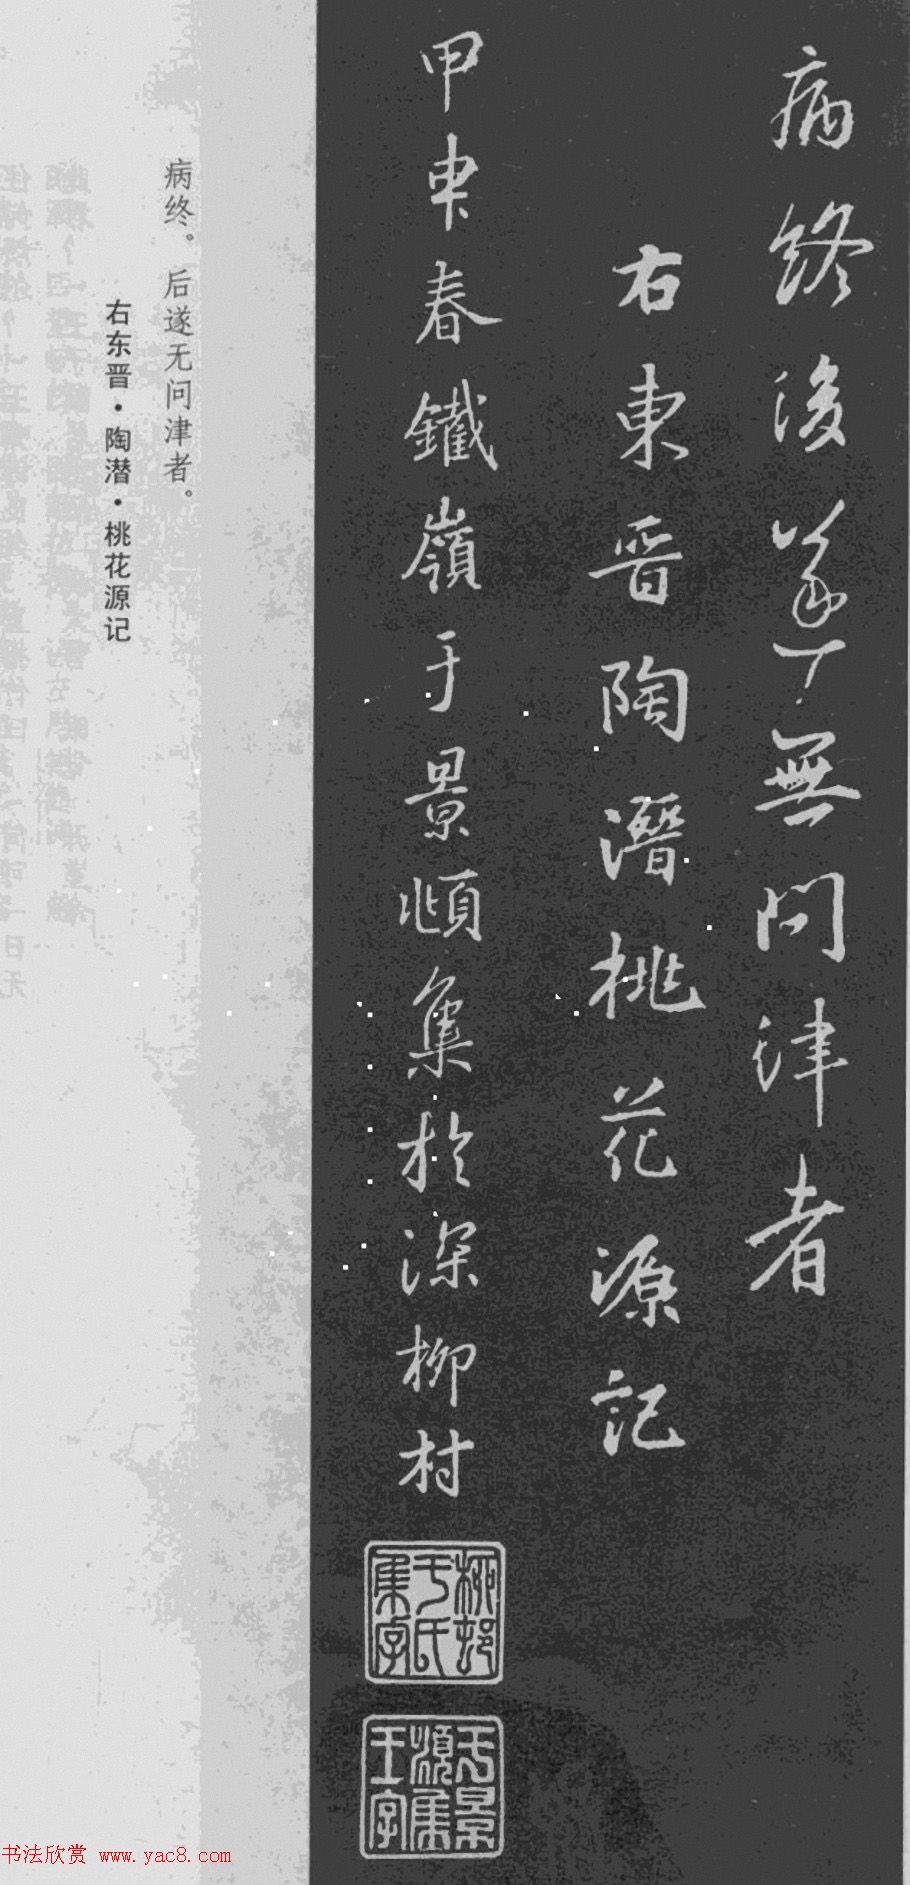 病終後遂無問津者
右東晋陶潛桃花源記
甲申春鐵嶺于景頫集於深柳村
柳邨于氏集字
于景頫集王字
病终。后遂无问津者。
右东晋·陶潜·桃花源记
书法欣赏 www.yac8.com